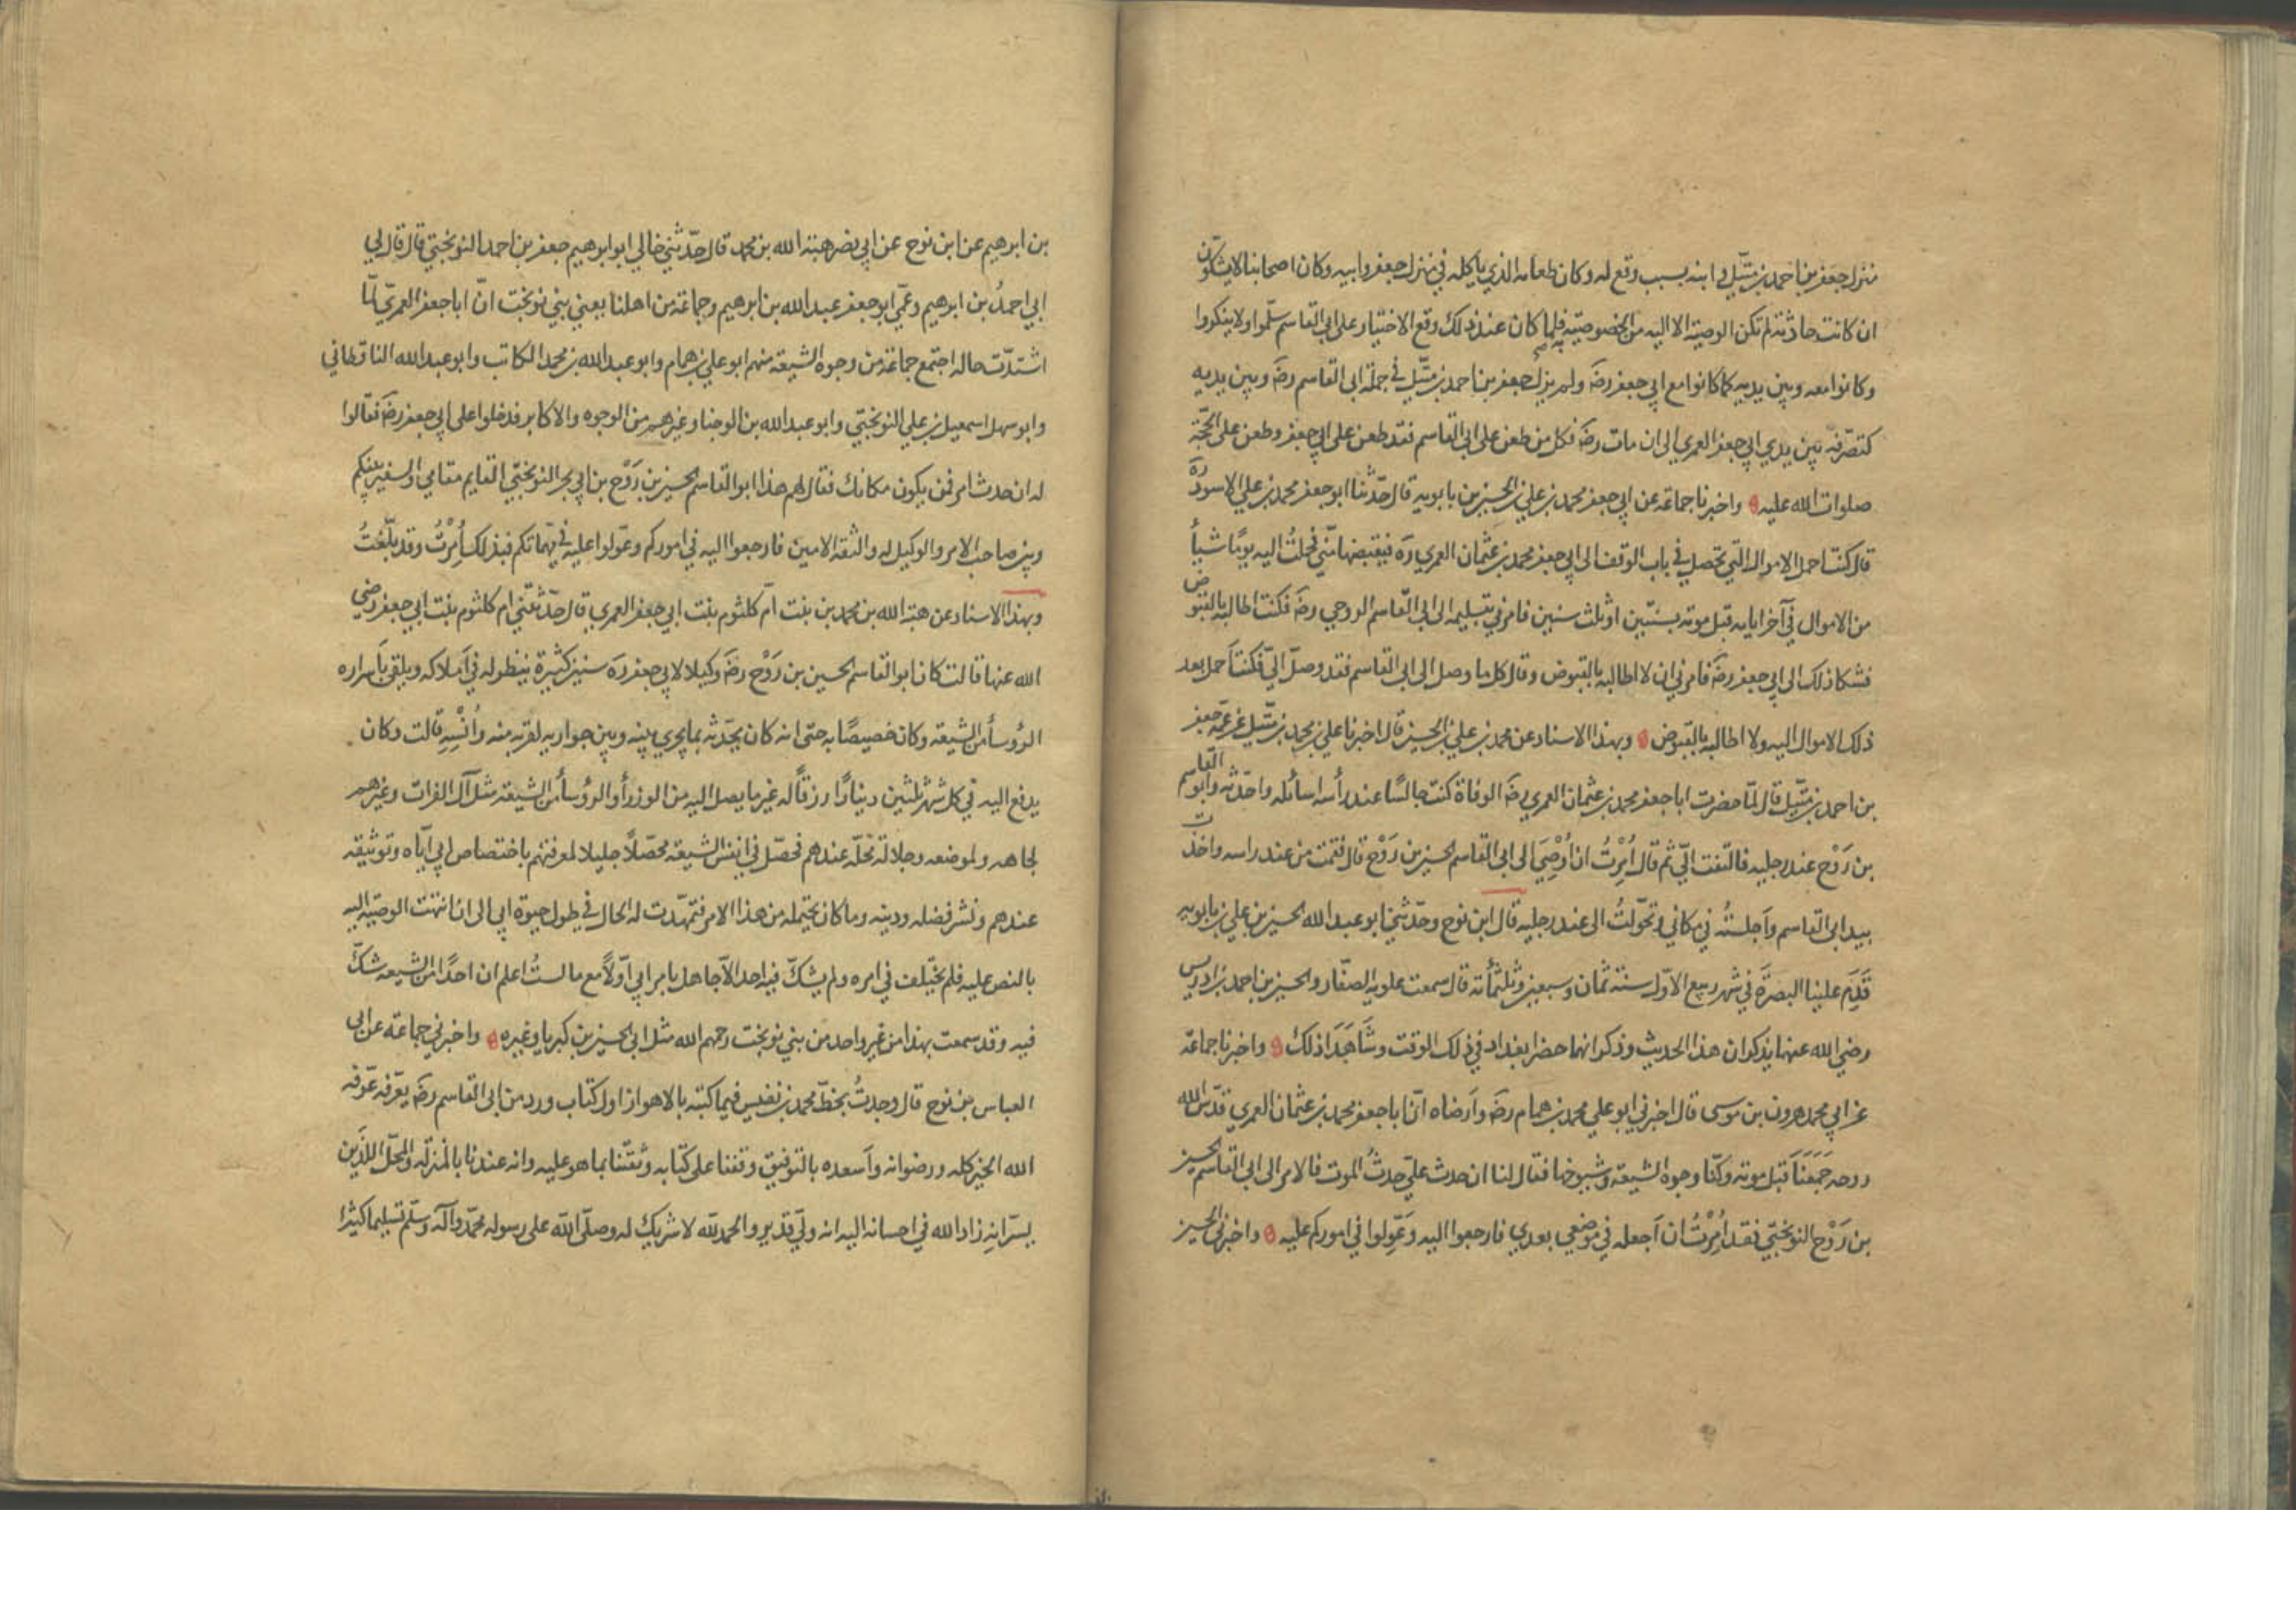 منزل جعفر بن احمد بن متّيل وابنه بسبب وقع له وكان طعامه الذي ياكله في منزل جعفر وابيه وكان اصحابنا لا يشكّون
ان كانت حادثة لم تكن الوصيّة الا اليه من الخصوصيّة به فلما كان عند ذلك وقع الاختيار على ابي القاسم سلّموا ولا ينكروا
وكانوا معه وبين يديه كما كانوا مع ابي جعفر رضَ ولم يزل جعفر بن احمد بن متّيل في جملة ابي القاسم رضَ وبين يديه
كتصرّفه بين يدي ابي جعفر العمري الى ان مات رضَ فكل من طعن على ابي القاسم فقد طعن على ابي جعفر وطعن على الحجّة
صلوات الله عليه واخبرنا جماعة عن ابي جعفر محمد بن علي بن الحسين بن بابويه قال حدّثنا ابو جعفر محمد بن علي الاسود رَه
قال كنت احمل الاموال التي تحصل في باب الوقف الى ابي جعفر محمد بن عثمان العمري رَه فيقبضها منّي فحملتُ اليه يومًا شيأً
من الاموال في آخر ايامه قبل موته بسنتين او ثلث سنين فامرني بتسليمه الى ابي القاسم الروحي رضَ فكنت اطالبه بالقبوض
فشكا ذلك الى ابي جعفر رضَ فامرني ان لا اطالبه بالقبوض وقال كل ما وصل الى ابي القاسم فقد وصل اليّ فكنت اَحمل بعد
ذلك الاموال اليه ولا اطالبه بالقبوض وبهذا الاسناد عن محمد بن علي بن الحسين قال اخبرنا علي بن محمد بن متّيل عن عمّه جعفر
بن احمد بن متّيل قال لمّا حضرت ابا جعفر محمد بن عثمان العمري رضَ الوفاة كنت جالسًا عند رأسه اسائله واحدّثه وابو القاسم
بن رَوْح عند رجليه فالتفت اليّ ثم قال اُمِرْتُ ان اُوْصِيَ الى ابي القاسم الحسين بن رَوْح قال فقمت من عند راسه واخذت
بيد ابي القاسم واَجلستُه في مكاني وتحوّلتُ الى عند رجليه قال ابن نوح وحدّثني ابو عبد الله الحسين بن علي بن بابويه
قَدِمَ علينا البصرَة في شهر ربيع الاوّل سنة ثمان وسبعين وثلثمائة قال سمعت علوية الصفّار والحسين بن احمد بن ادريس
رضي الله عنهما يذكران هذا الحديث وذكرا انهما حضرا بغداد في ذلك الوقت وشَاهَدَا ذلك واخبرنا جماعة
عن ابي محمد هرون بن موسى قال اخبرني ابو علي محمد بن همام رضَ واَرضاه انّ ابا جعفر محمد بن عثمان العمري قدّس الله
روحه جَمَعَنَا قبل موته وكنّا وجوه الشيعة وشيوخها فقال لنا ان حدث عليّ حدثُ الموت فالامر الى ابي القاسم الحسين
بن رَوْح النوبختي فقد اُمِرْتُ ان اَجعله في مَوْضعي بعدي فارجعوا اليه وَعَوِّلوا في اموركم عليه واخبرني الحسين
بن ابرهيم عن ابن نوح عن ابي نصر هبة الله بن محمد قال حدّثني خالي ابو ابرهيم جعفر بن احمد النوبختي قال قال لي
ابي احمدُ بن ابرهيم وعمّي ابو جعفر عبد الله بن ابرهيم وجماعة من اهلنا يعني بني نوبخت انّ ابا جعفر العمريّ لمّا
اشتدّت حاله اجتمع جماعة من وجوه الشيعة منهم ابو علي بن همام وابو عبد الله بن محمد الكاتب وابو عبد الله الناقطاني
وابو سهل اسمعيل بن علي النوبختي وابو عبد الله بن الوجنا وغيرهم من الوجوه والاكابر فدخلوا على ابي جعفر رضَ فقالوا
له ان حدث امر فمن يكون مكانك فقال لهم هذا ابو القاسم الحسين بن رَوْح بن ابي بحر النوبختيّ القايم مقامي والسفير بينكم
وبين صاحب الامر والوكيل له والثقة الامين فارجعوا اليه في اموركم وعوّلوا عليه في مهمّاتكم فبذلك اُمِرْتُ وقد بلّغتُ
وبهذا الاسناد عن هبة الله بن محمد بن بنت اُمّ كلثوم بنت ابي جعفر العمري قال حدّثتني ام كلثوم بنت ابي جعفر رضي
الله عنها قالت كان ابو القاسم الحسين بن رَوْح رضَ وكيلا لابي جعفر رَه سنين كثيرة ينظر له في اَملاكه ويلقي باَسراره
الرؤسأ من الشيعة وكان خصيصًا به حتى انه كان يحدّثه بما يجري بينه وبين جواريه لقربه منه واُنْسِهِ قالت وكان
يدفع اليه في كل شهر ثلثين دينارًا رزقًا له غير ما يصل اليه من الوزرأ والرؤسأ من الشيعة مثل آل الفرات وغيرهم
لجاهه ولموضعه وجلالة محلّه عندهم فحصّل في انفس الشيعة محصّلًا جليلا لمعرفتهم باختصاص ابي ايّاه وتوثيقه
عندهم ونشر فضله ودينه وما كان يحتمله من هذا الامر فتمهّدت له الحال في طول حيوة ابي الى ان انتهت الوصيّة اليه
بالنص عليه فلم يختلف في امره ولم يشكّ فيه احد الّا جاهل بامر ابي اوّلًا مع ما لستُ اعلم ان احدًا من الشيعة شكّ
فيه وقد سمعت بهذا من غير واحد من بني نوبخت رحمهم الله مثل ابي الحسين بن كبريا وغيره واخبرني جماعة عن ابي
العباس بن نوح قال وجدتُ بخطّ محمد بن نفيس فيما كتبه بالاهواز اول كتاب ورد من ابي القاسم رضَ يعرّفه عرّفه
الله الخير كله ورضوانه واَسعده بالتوفيق وقفنا على كتابه وثقتنا بما هو عليه وانه عندنا بالمنزلة والمحلّ اللذَين
يسرّانِهِ زاد الله في احسانه اليه انه وليّ قدير والحمد للّه لا شريك له وصلّى الله على رسوله محمّد وآله وسلّم تسليما كثيرًا